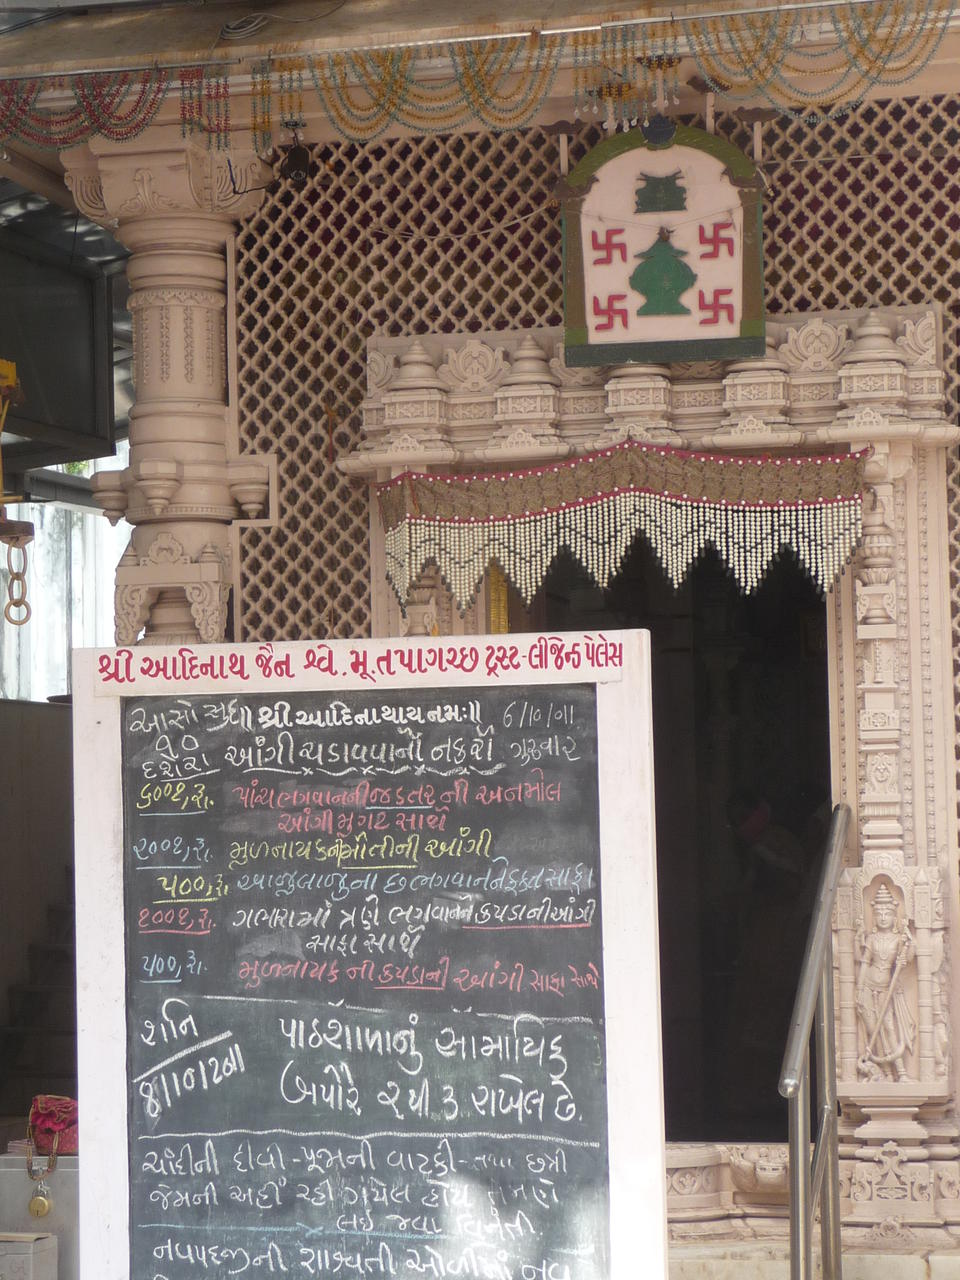 શ્રી આદિનાથ જૈન શ્વે. મૂ. તપાગચ્છ ટ્રસ્ટ-લીજેન્ડ પેલેસ
આસો સુદ ॥ શ્રી આદિનાથાય નમઃ ॥ ૬/૧૦/૧૧
૧૦ દશેરા આંગી ચડાવવાનો નકરો ગુરુવાર
૬૦૦૧,રૂ. પાંચ ભગવાનની જડતર ની અનમોલ
આંગી મુગટ સાથે
૨૦૦૧,રૂ. મુળનાયકને મોતીની આંગી
૫૦૦,રૂ. આજુબાજુના છ ભગવાનને ફક્ત સાફા
૧૦૦૧,રૂ. ગભારામાં ત્રણે ભગવાનને કપડાની આંગી
સાફા સાથે
૫૦૦,રૂ. મુળનાયક ની કપડાની આંગી સાફા સાથે
શનિ પાઠશાળાનું સામાયિક
બપોરે ૨ થી ૩ રાખેલ છે.
ચાંદીની દીવી - પૂજાની વાટકી - તથા છત્રી
જેમની અહીં રહી ગયેલ હોય તેમણે
લઇ જવા વિનંતી.
નવપદજીની શાશ્વતી ઓળીમાં નવ